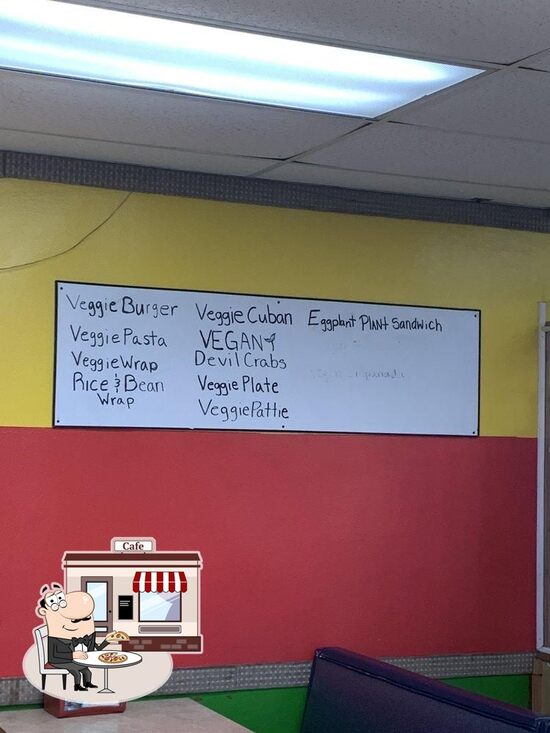 Veggie Burger
Veggie Pasta
Veggie Wrap
Rice & Bean
Wrap
Veggie Cuban
VEGAN
Devil Crabs
Veggie Plate
Veggie Pattie
Eggplant Plant Sandwich
Cafe